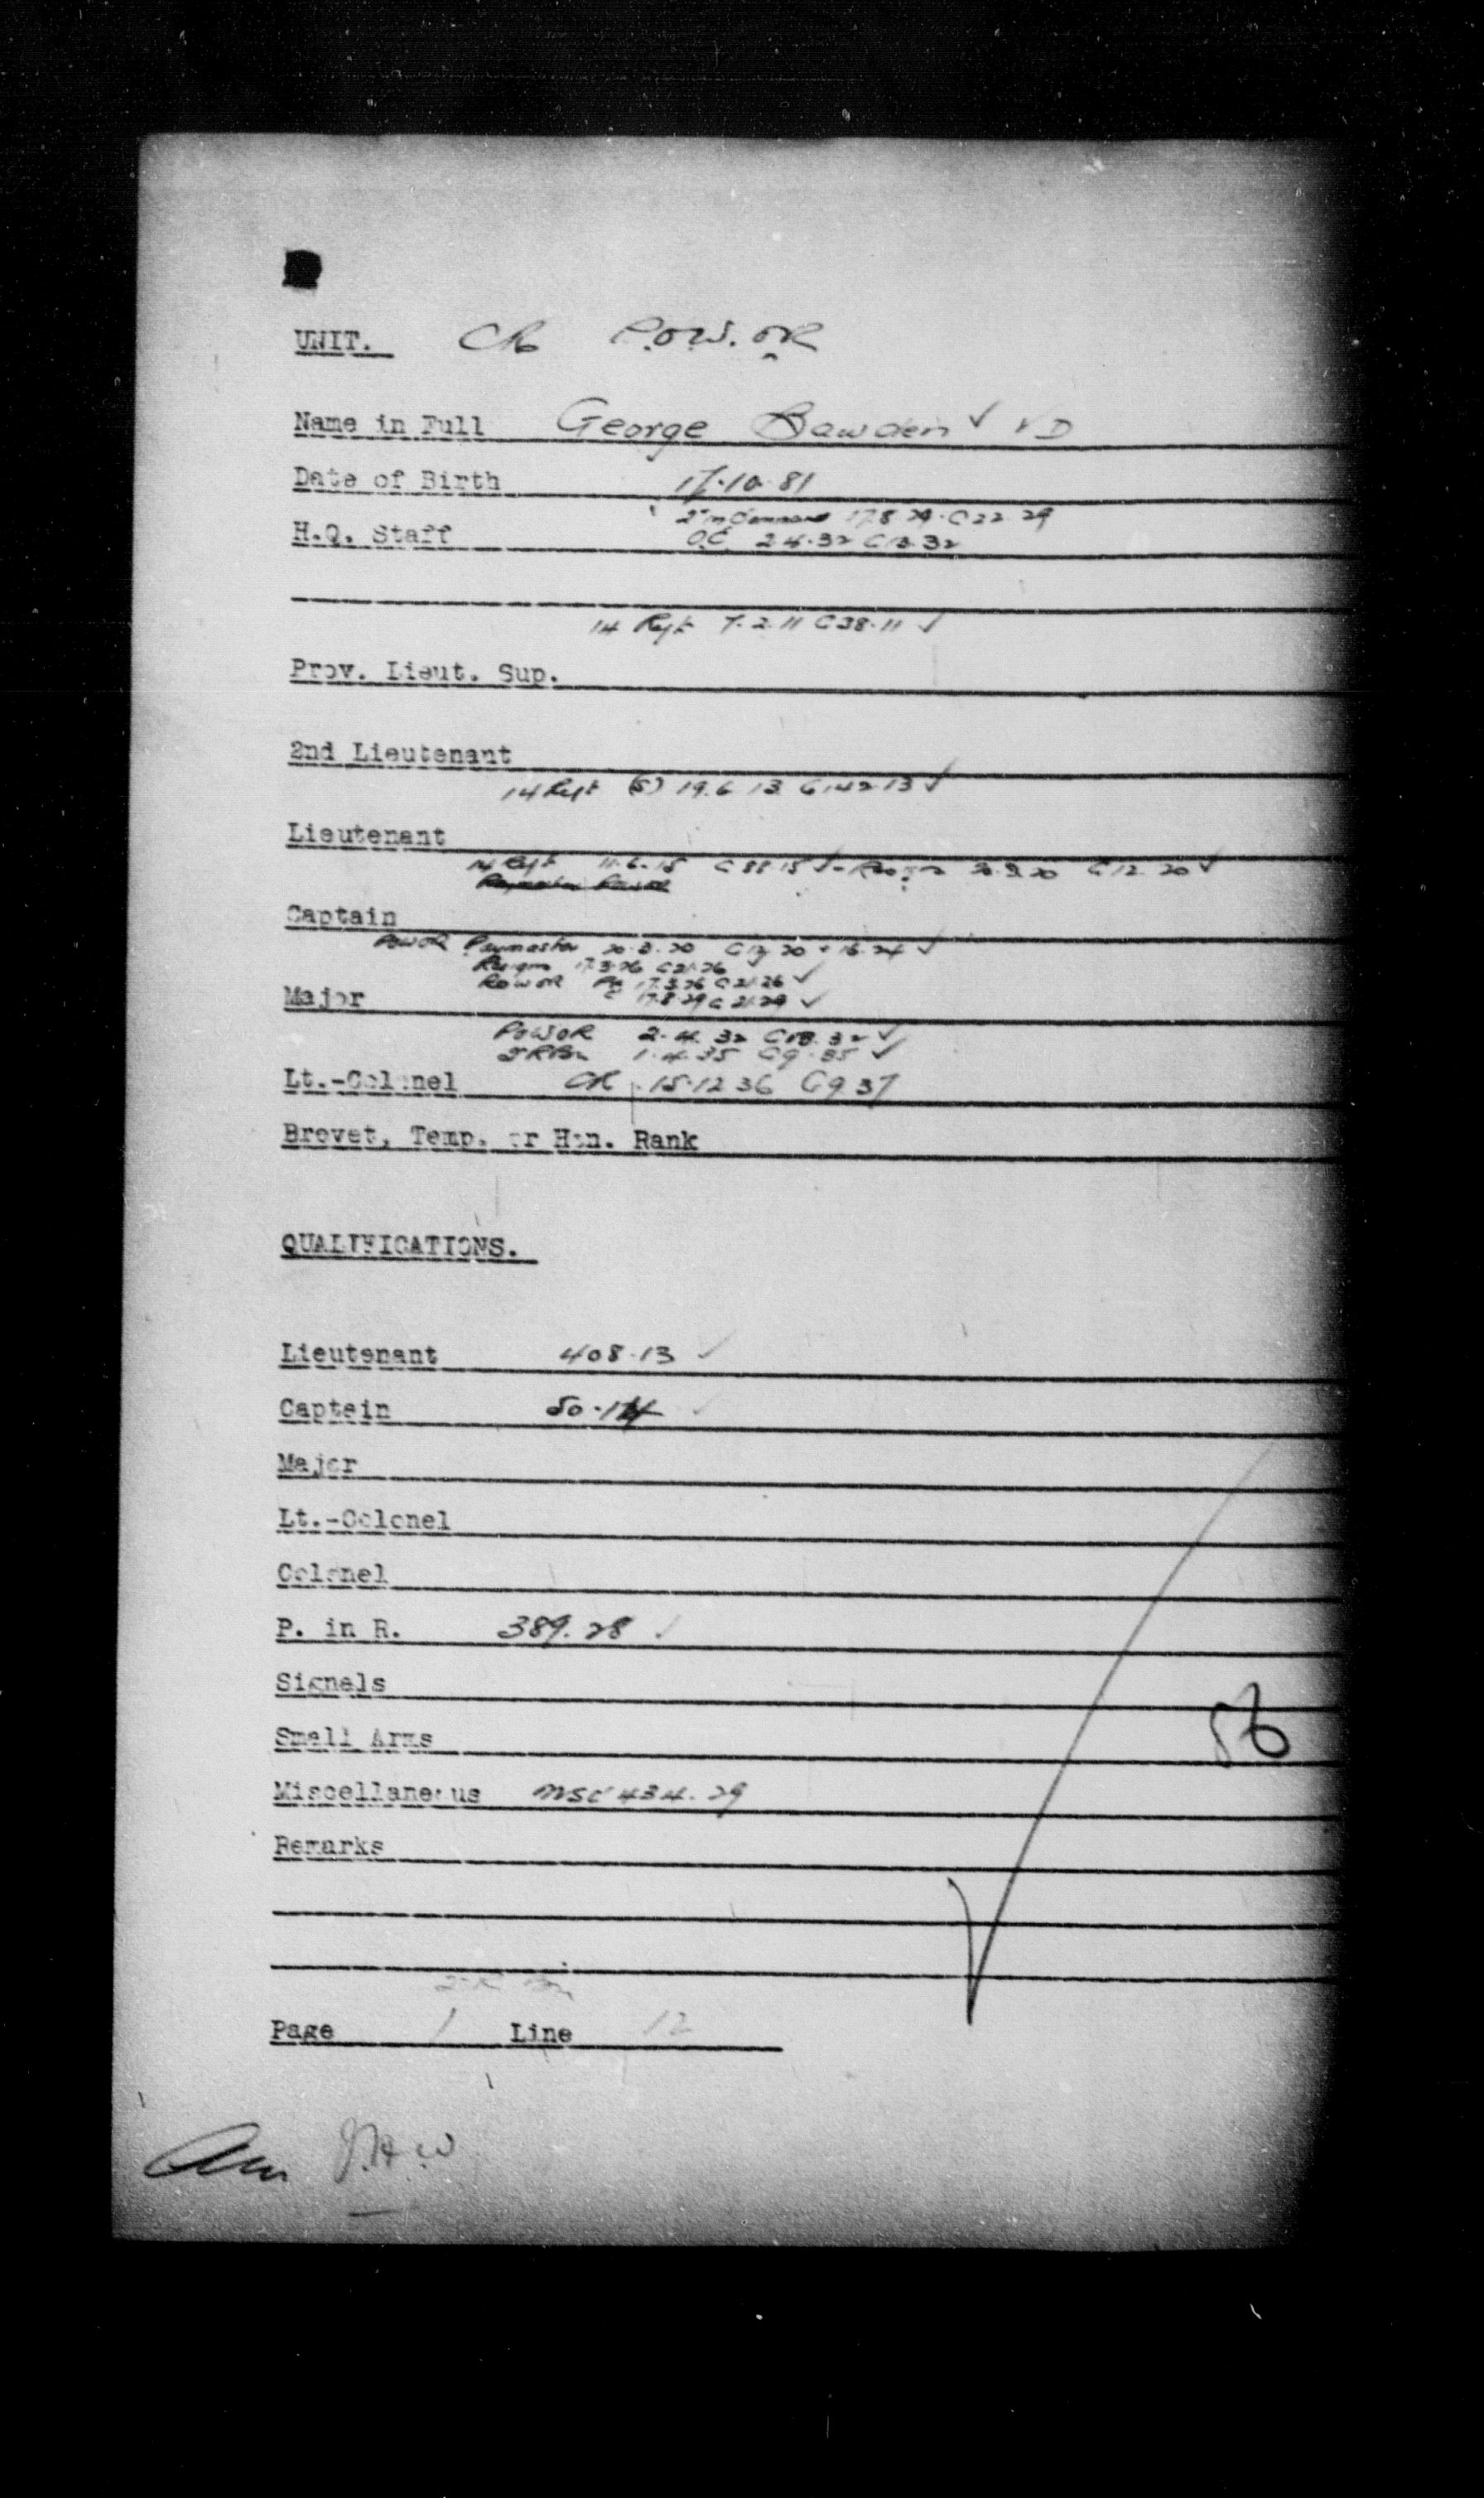 UNIT. CR P.O.W.OR
Name in Full George Bawden ✓ VD
Date of Birth 17.10.81
2nd in Command 17.8.29. G 22.29
H.Q. Staff O.C. 2.4.32 G 13.32
14 Regt 7.2.11 G 38.11 ✓
Prov. Lieut. Sup.
2nd Lieutenant
14 Regt (S) 19.6.13 G 142.13 ✓
Lieutenant
14 Regt 11.6.15 G 88.15 ✓ 20.3.20 G 12.20 ✓
Captain
POWOR Paymaster 20.3.20 G 12.20 + 16.24 ✓
Resigns 17.3.26 G 21.26 ✓
POWOR 17.3.26 G 21.26 ✓
Major 17.8.29 G 21.29 ✓
POWOR 2.4.32 G 13.32 ✓
2 R Bn 1.4.35 G 9.35 ✓
Lt.-Colonel CR 15.12.36 G 9 37
Brevet, Temp. or Hon. Rank
QUALIFICATIONS.
Lieutenant 408.13 ✓
Captain 50.14 ✓
Major
Lt.-Colonel
Colonel
P. in R. 389.28 ✓
Signals
Small Arms
56
Miscellaneous MSC 434.29
Remarks
2 R Bn
Page 1 Line 12